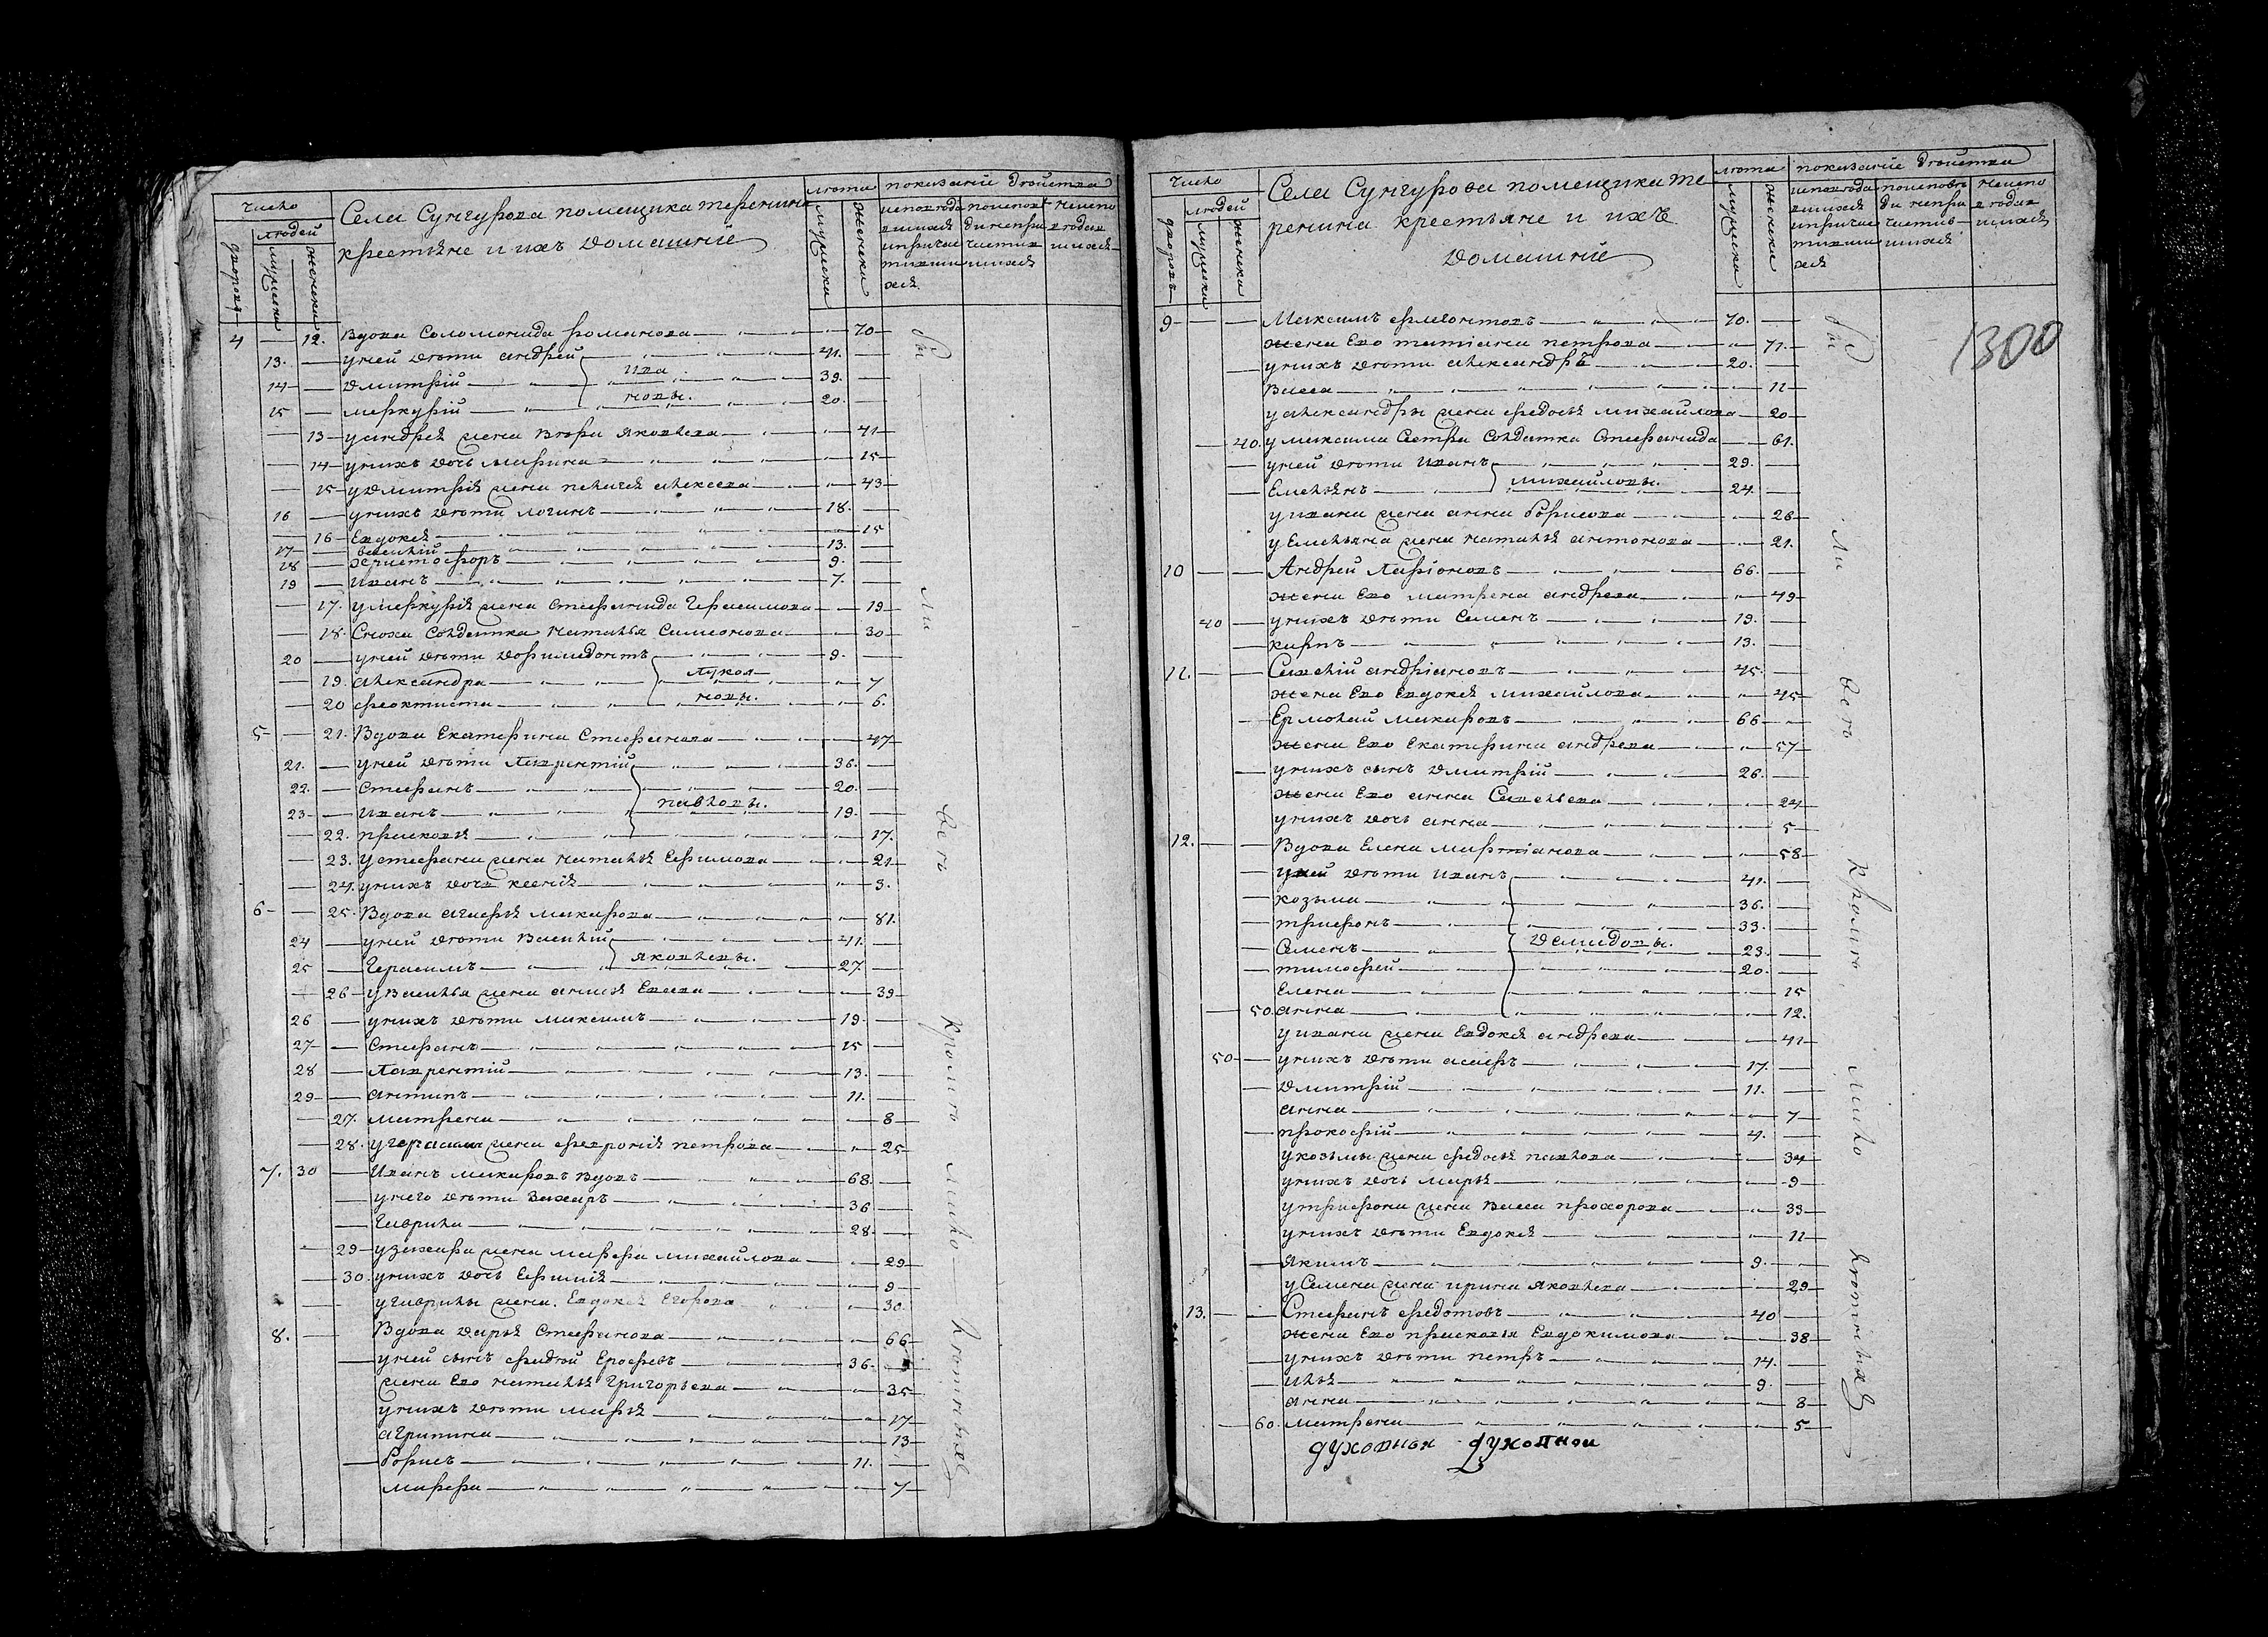 число
людей
дворовъ
мужеска
женска
Села Сунгурова помещика теренина
крестьяне и ихъ домашніе
лѣта
мужеска
женска
показаніе дѣйства
4 12. Вдова Соломонида романова 70
13. у ней дѣти андрей 41.
14 дмитрій ива 39.
15 меркурій новы. 20.
13 у андрея жена варвара яковлева 41
14 у нихъ дочь марина 15
15 у дмитрія жена пелагея алексеева 43
16 у нихъ дѣти логинъ 18.
16 Евдокея 15
17 василій 13.
18 христофоръ 9.
19 иванъ 7.
17. у меркурія жена стефанида Герасимова 19
18. Сноха солдатка наталья Симонова 30
20 у ней дѣти доримедонтъ 9.
19. александра лукоя 7
20 феоктиста новы. 6.
5 21. Вдова Екатерина Стефанова 47
21. у ней дѣти лаврентій 36.
22. стефанъ 20.
23 иванъ павловы. 19.
22. прасковья 17.
23. у стефана жена наталья Ефимова 21
24. у нихъ дочь ксенія 3.
6 25. Вдова агафья макарова 81.
24 у ней дѣти Василій 41.
25 Герасимъ яковлевы. 27
26 у Василья жена анисья Евсева 39
26 у нихъ дѣти максимъ 19
27 стефанъ 15
28 лаврентій 13.
29 антипъ 11.
27. матрена 8
28. у герасима жена февронія петрова 25
7. 30 Иванъ макаровъ вдовъ 68.
у него дѣти Захаръ 36
Гаврила 28.
29 у захара жена марфа михайлова 29
30. у нихъ дочь Ефимія 9
у гаврилы жена Евдокея егорова 30
8. Вдова дарья Стефанова 66
у ней сынъ федотъ Ерофеевъ 36.
жена Ево наталья Григорьева 35
у нихъ дѣти марья 17
агрипина 13
борисъ 11.
марфа 7
число
людей
дворовъ
мужеска
женска
Села Сунгурова помещика те
ренина крестьяне и ихъ
домашніе
лѣта
мужеска
женска
показаніе дѣйства
1300
9 Максимъ ферапонтовъ 70.
жена Ево татіана петрова 71.
у нихъ дѣти александръ 20.
Васса 11
у александры жена федосья михайлова 20
40. у максима сестра солдатка стефанида 61.
у ней дѣти иванъ 29.
Емельянъ михайловы. 24.
у ивана жена анна борисова 26
у Емельяна жена наталья антонова 21.
10 Андрей ларіоновъ 66.
жена Ево матрена андреева 49
40 у нихъ дѣти семенъ 19.
карпъ 13.
11. Савелій андріановъ 45.
жена Ево Евдокея михайлова 45
Ермолай макаровъ 66
жена Ево Екатерина андреева 57
у нихъ сынъ дмитрій 26.
жена Ево анна Савельева 24
у нихъ дочь анна 5
12. Вдова Елена мартіанова 58
у ней дѣти иванъ 41.
козьма 36.
трифонъ 33.
Семенъ демидовы. 23.
тимофей 20.
Елена 15
50. анна 12.
у ивана жена Евдокея андреева 41
50 у нихъ дѣти асафъ 17
дмитрій 11.
анна 7
прокофій 4.
у козьмы жена федосья павлова 34
у нихъ дочь марья 9
у трифона жена васса прохорова 33
у нихъ дѣти Евдокея 11
якимъ 9.
у Семена жена ирина яковлева 29
13. Стефанъ федотовъ 40
жена Ево прасковья Евдокимова 38
у нихъ дѣти петръ 14.
илья 9.
анна 8
60. матрена 5
духовныя духовной